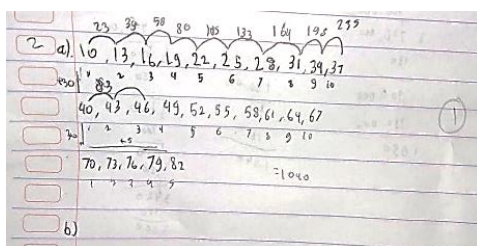 23 39 58 80 105 133 164 198 235
2 a). 10, 13, 16, 19, 22, 25, 28, 31, 34, 37
+30 1 2 3 4 5 6 7 8 9 10
83
40, 43, 46, 49, 52, 55, 58, 61, 64, 67
30 1 2 3 4 5 6 7 8 9 10
+5
70, 73, 76, 79, 82
1 2 3 4 5
=1040
1
b)